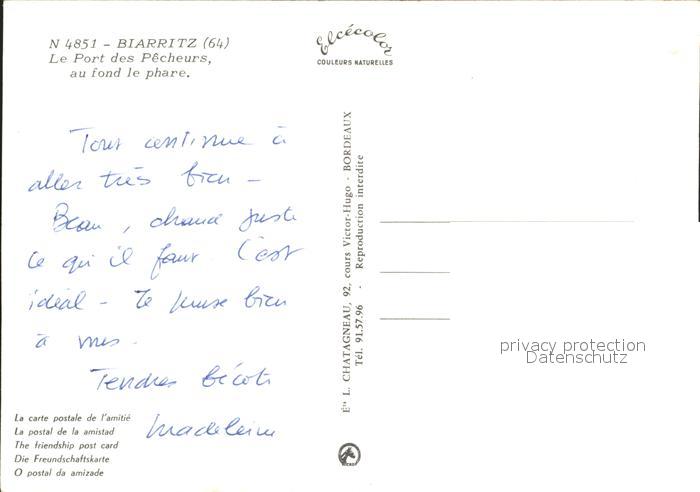 N 4851 - BIARRITZ (64)
Le Port des Pêcheurs,
au fond le phare.
Elcécolor
COULEURS NATURELLES
Tout continue à
aller très bien -
Beau, chaud juste
ce qu'il faut. C'est
idéal - Je pense bien
à vous.
Tendres bécots
Madeleine
La carte postale de l'amitié
La postal de la amistad
The friendship post card
Die Freundschaftskarte
O postal da amizade
Éts L. CHATAGNEAU, 92, cours Victor-Hugo - BORDEAUX
Tél. 91.57.96 - Reproduction interdite
privacy protection
Datenschutz